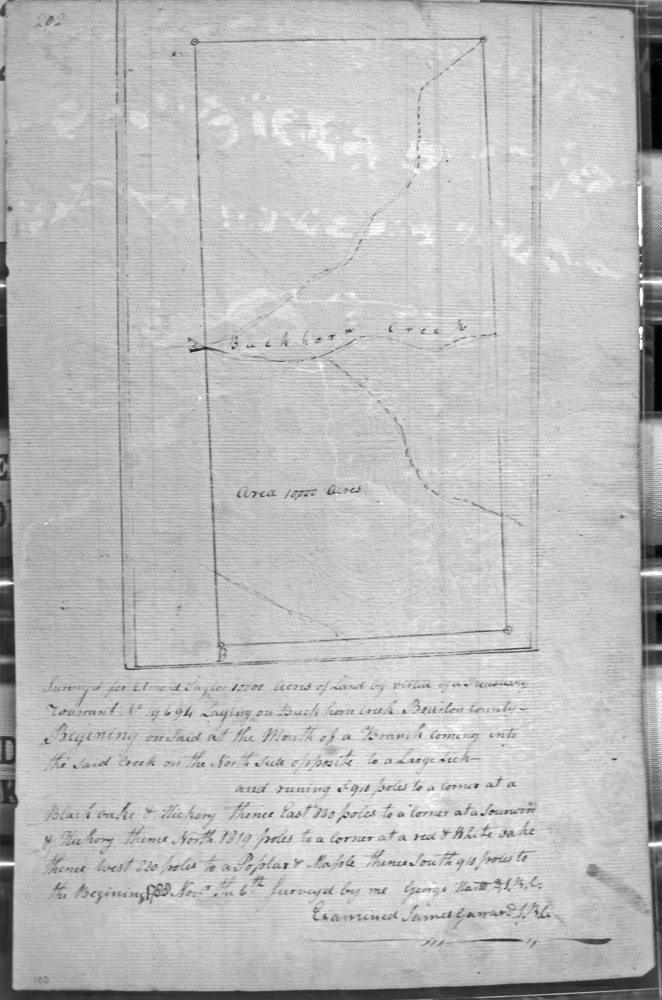 202
Buckhorn Creek
Area 10,000 Acres
B
Surveyd for Edmond Taylor 10000 Acres of Land by virtue of a Treasuary
Warrant No. Laying on Buckhorn Creek Bourbon County
Begining on said at the Mouth of a Branch coming into
the said Creek on the North Side opposite to a Large Lick
and runing S 910 poles to a corner at a
Black oake & Hickory thence East 880 poles to a corner at a Sourwood
& Hickory thence North 1819 poles to a corner at a red & White oake
thence West 880 poles to a Poplar & Maple thence South 910 poles to
the Begining Novr. the 6th Surveyd by me George
Examined James Garrard S.B.C.